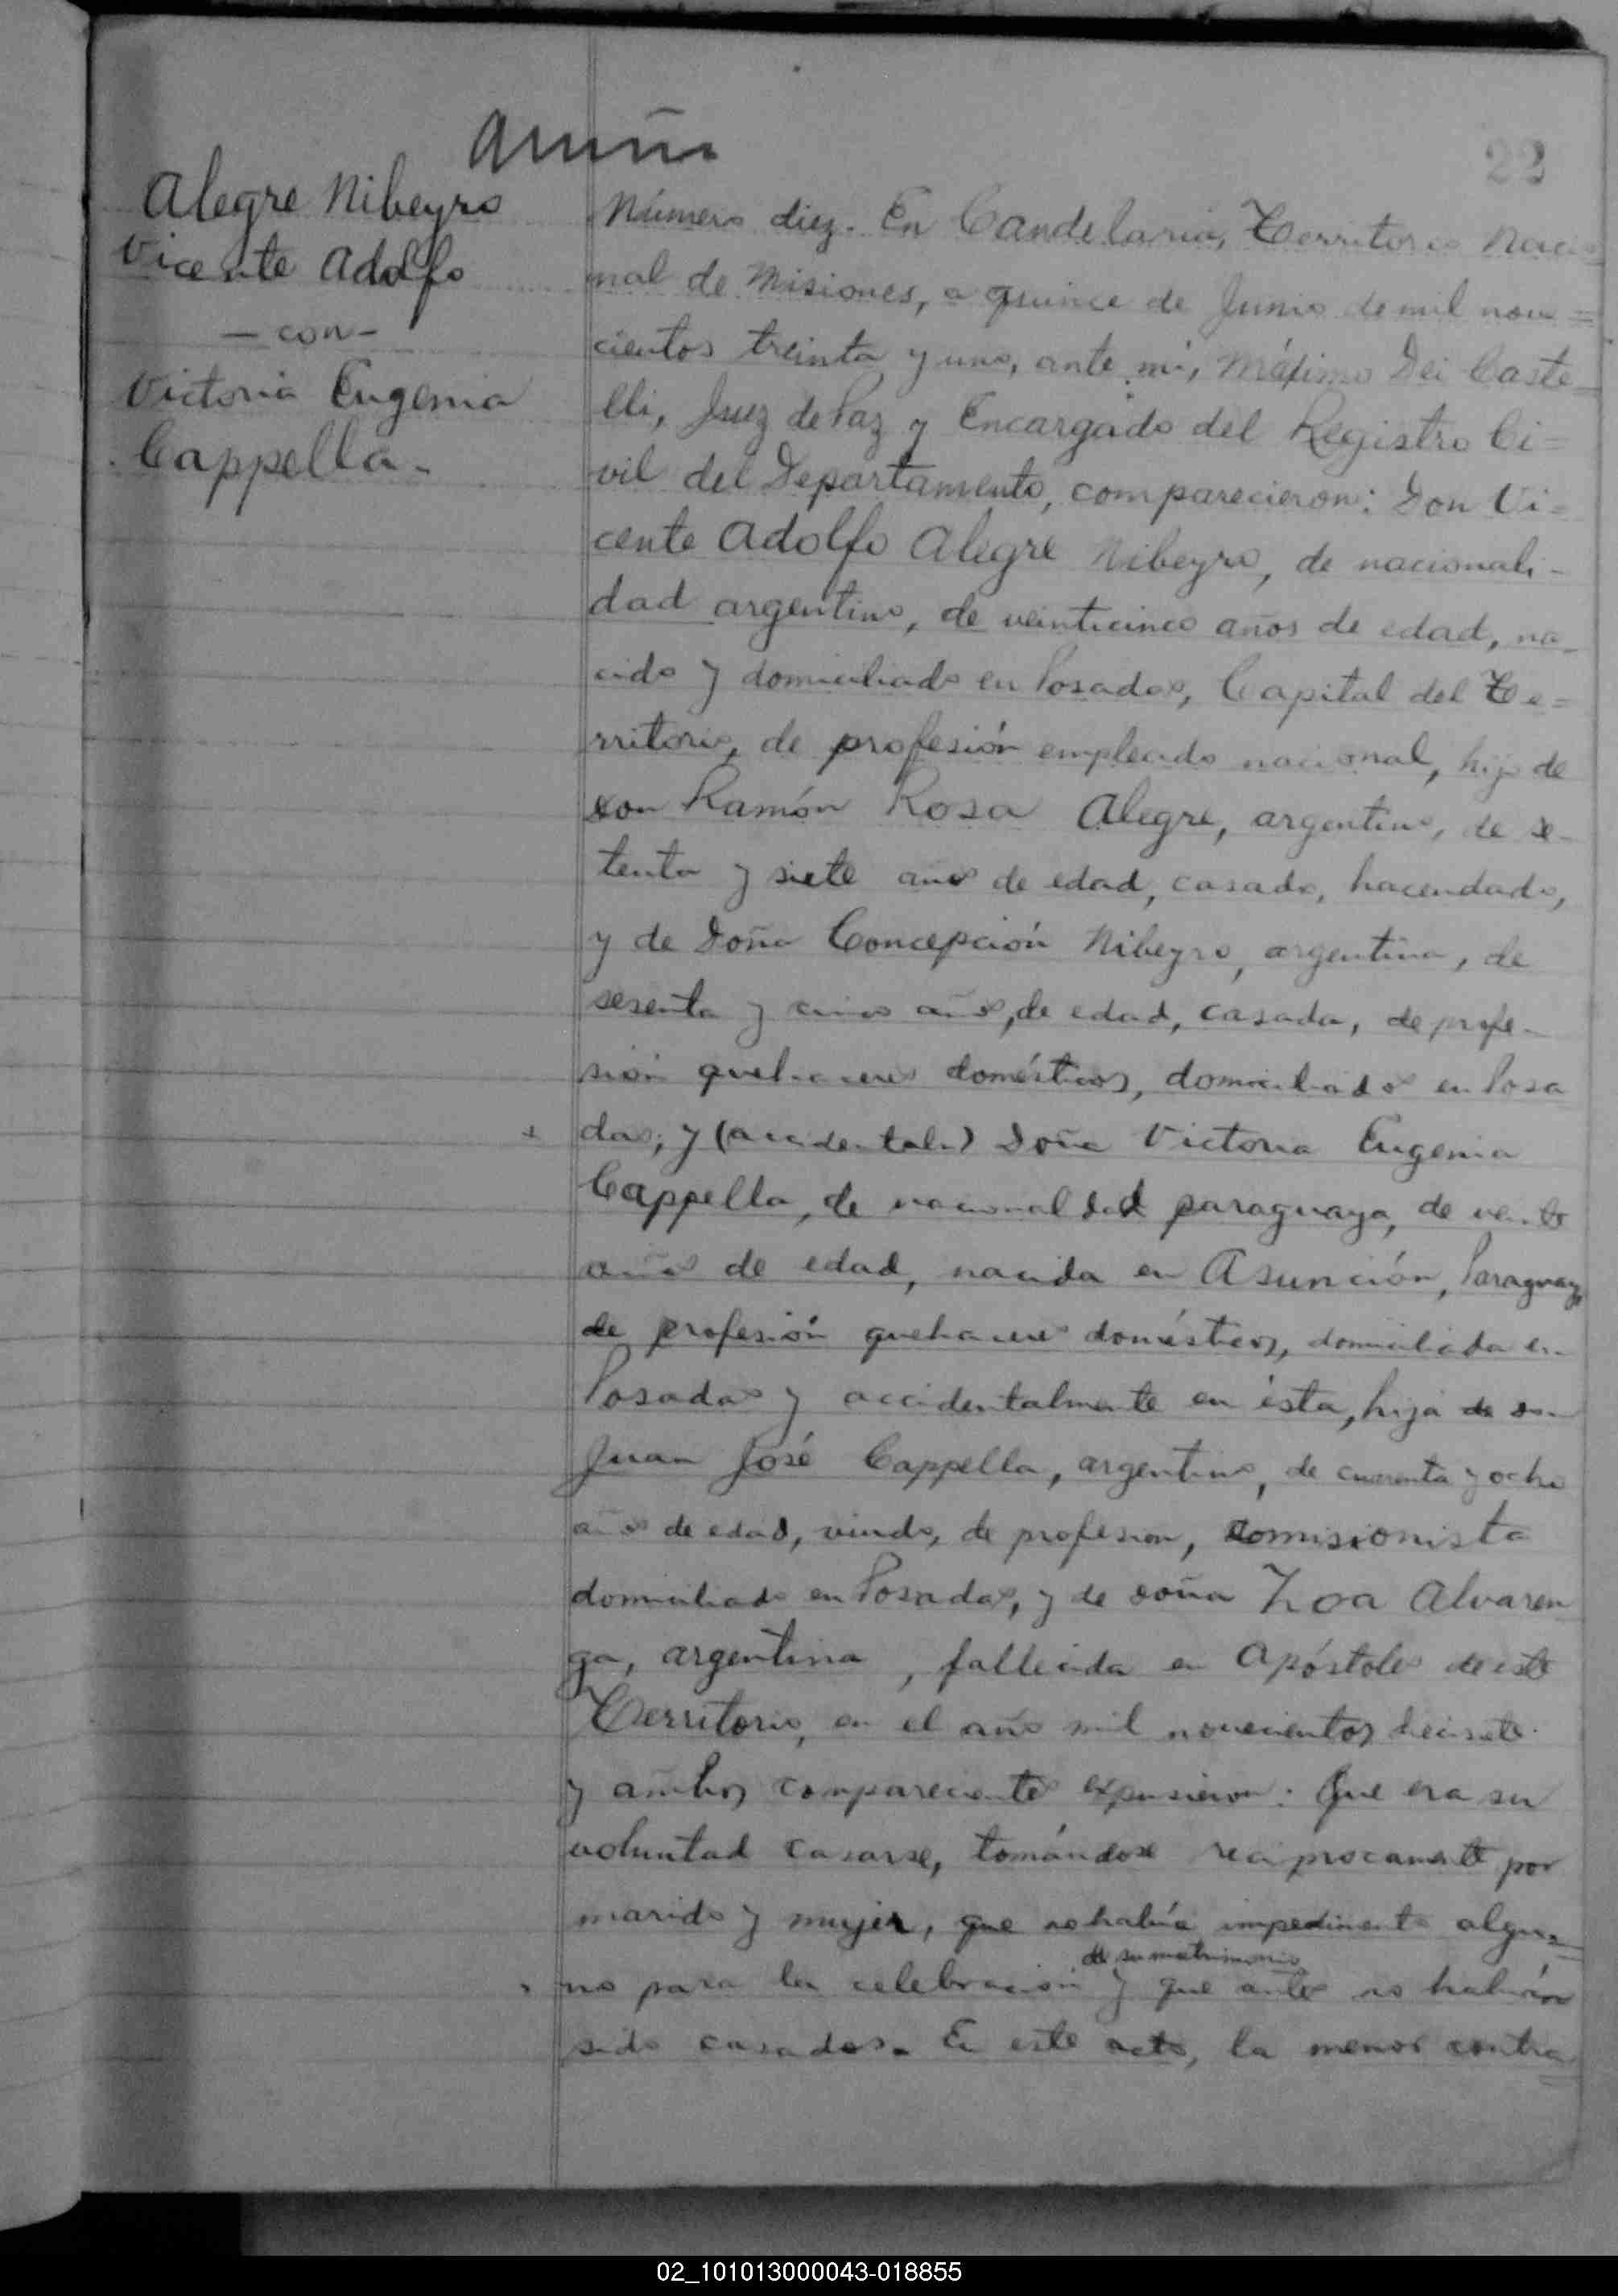 22
Alegre Nibeyro
Vicente Adolfo
- con -
Victoria Eugenia
Cappella.
Número diez. En Candelaria, Territorio Nacio
nal de Misiones, a quince de Junio de mil nove=
cientos treinta y uno, ante mí, Máximo Dei Caste=
lli, Juez de Paz y Encargado del Registro Ci=
vil del Departamento, comparecieron: Don Vi=
cente Adolfo Alegre Nibeyro, de nacionali-
dad argentino, de veinticinco años de edad, na-
cido y domiciliado en Posadas, Capital del Te=
rritorio, de profesión empleado nacional, hijo de
don Ramón Rosa Alegre, argentino, de se-
tenta y siete años de edad, casado, hacendado,
y de Doña Concepción Nibeyro, argentina, de
sesenta y cinco años, de edad, casada, de profe-
sión quehaceres domésticos, domiciliados en Posa
+ das; y (accidentale) Doña Victoria Eugenia
Cappella, de nacionalidad paraguaya, de veinte
años de edad, nacida en Asunción, Paraguay,
de profesión quehaceres domésticos, domiciliada en
Posadas y accidentalmente en ésta, hija de don
Juan José Cappella, argentino, de cuarenta y ocho
años de edad, viudo, de profesion, comisionista
domiciliado en Posadas, y de doña Zoa Alvaren
ga, argentina, fallecida en Apóstoles de este
Territorio, en el año mil novecientos diecisiete.
y ambos comparecientes expusieron: Que era su
voluntad casarse, tomándose reciprocamente por
marido y mujer, que no había impedimento algu=
de su matrimonio
no para la celebración y que antes no habían
sido casados. En este acto, la menor contra=
02_101013000043-018855